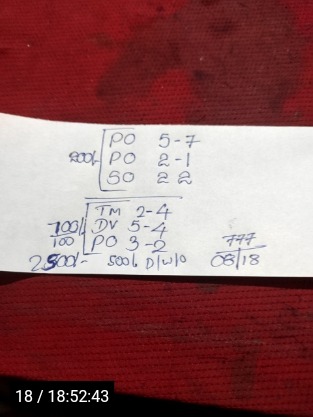 PO 5-7
200/- PO 2-1
SO 2 2
TM 2-4
700/- DV 5-4
100 PO 3-2
2500/- 500/- D/W/O
777
08/18
18 / 18:52:43